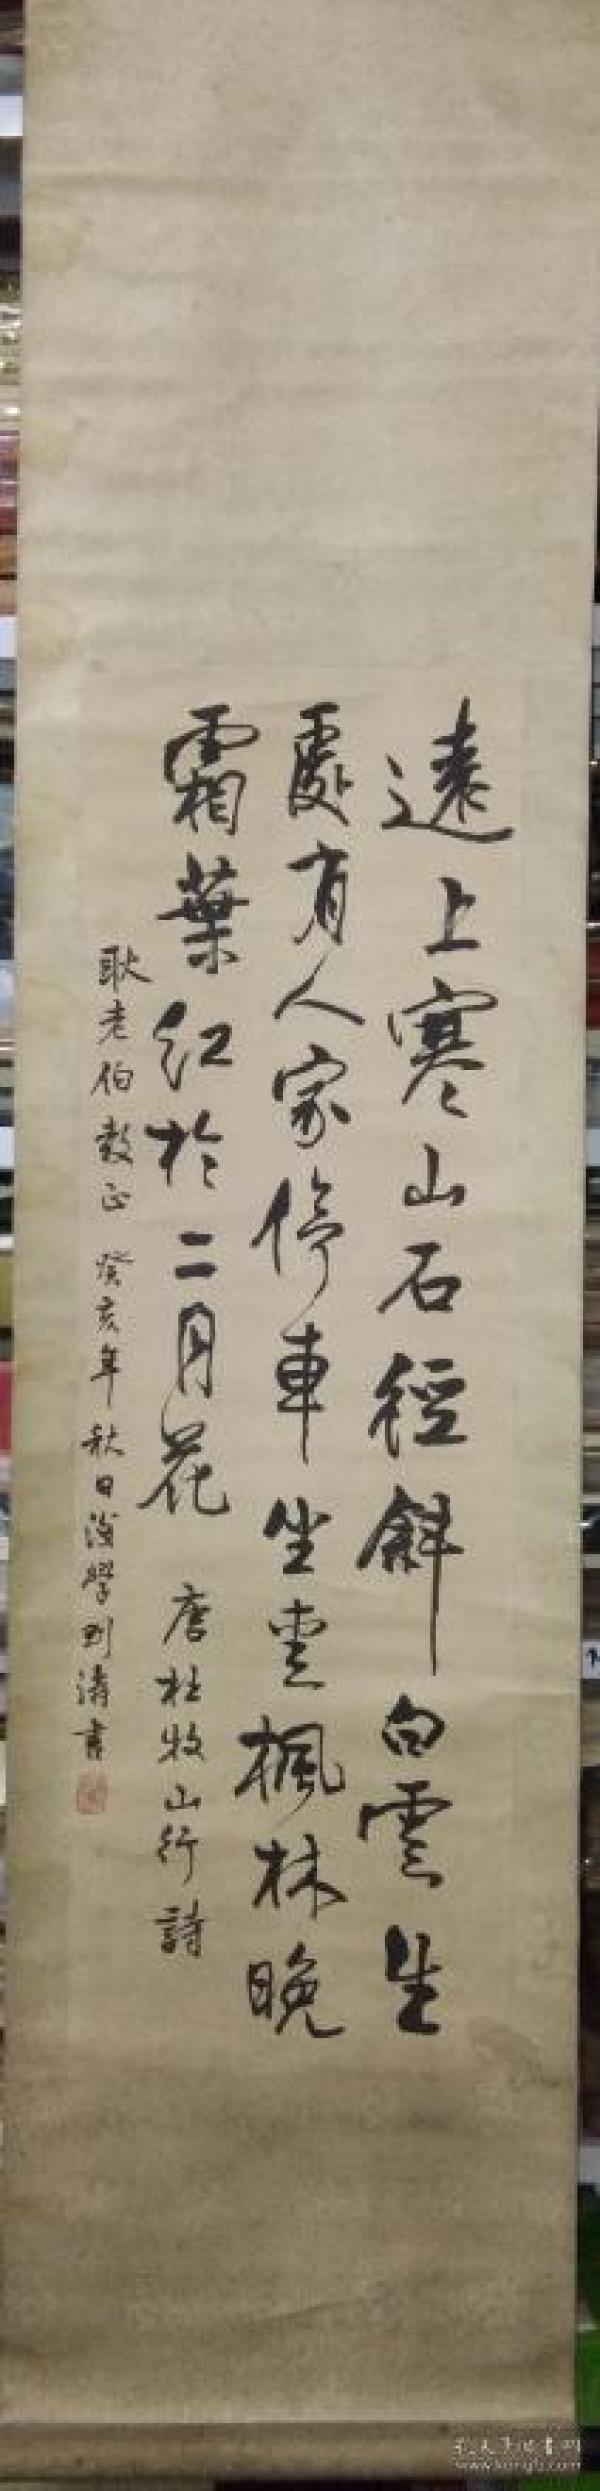 遠上寒山石徑斜白雲生
處有人家停車坐愛楓林晚
霜葉紅於二月花 唐杜牧山行詩
耿老伯教正 癸亥年秋日後學刘濤書
孔夫子旧书网
www.kongfz.com